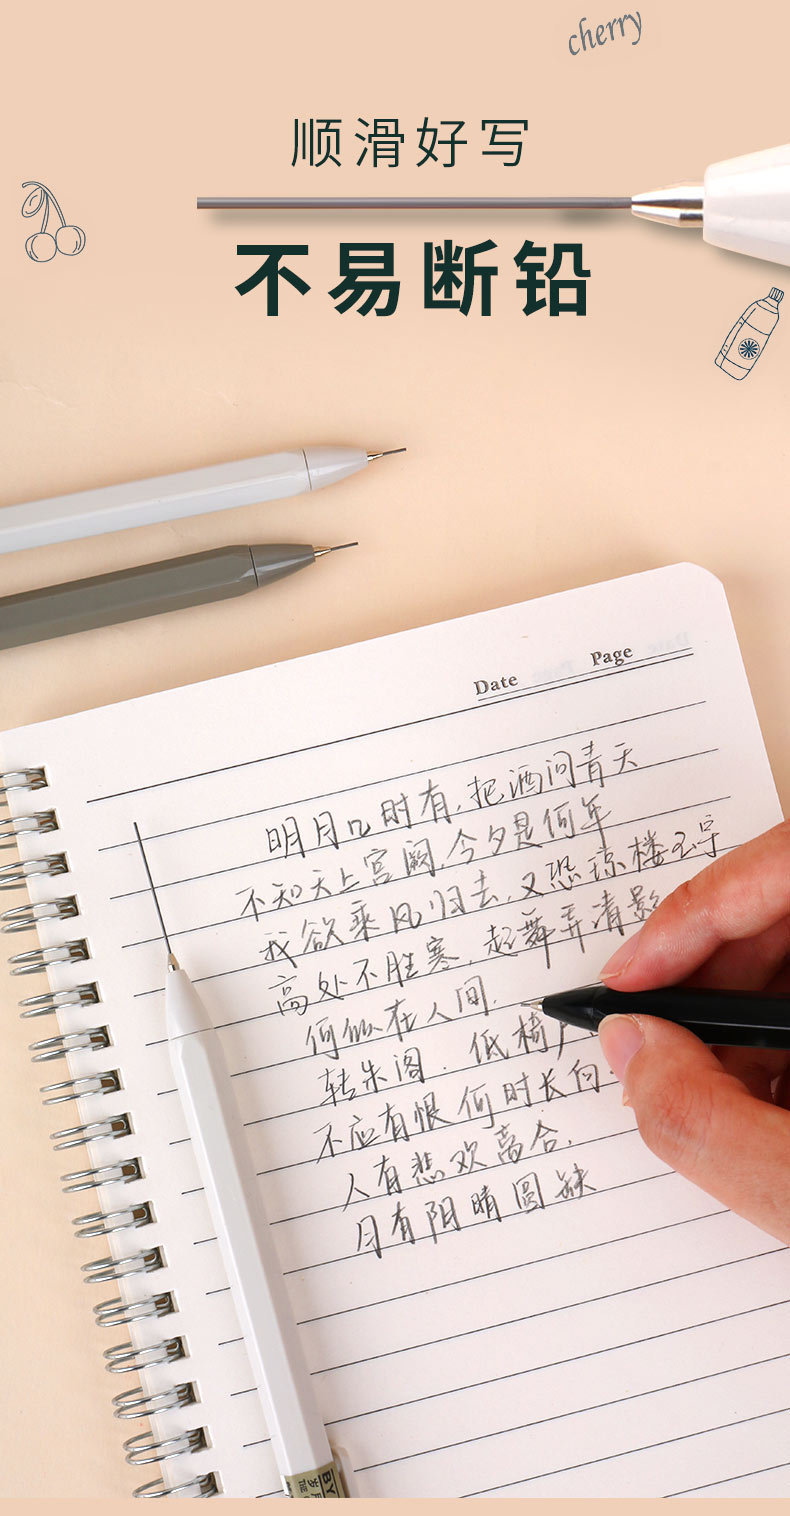 cherry
顺滑好写
不易断铅
Date Page
明月几时有,把酒问青天
不知天上宫阙,今夕是何年
我欲乘风归去,又恐琼楼玉宇
高处不胜寒,起舞弄清影
何似在人间.
转朱阁.低椅户
不应有恨何时长向
人有悲欢离合,
月有阴晴圆缺
BY